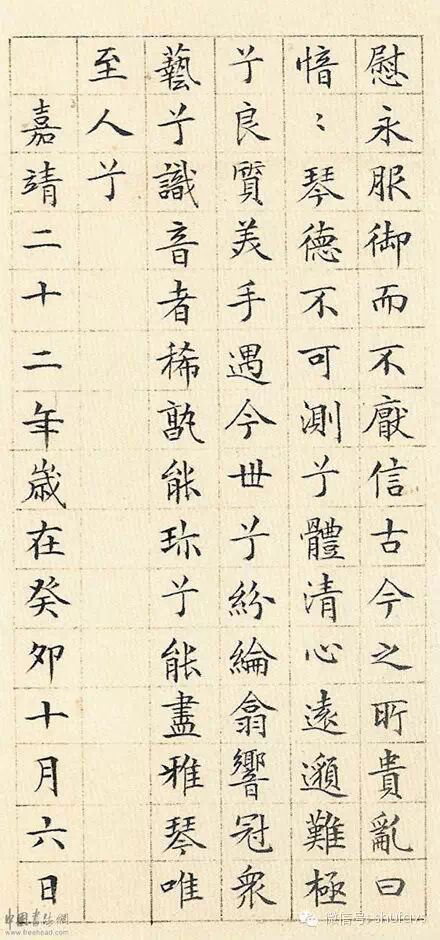 慰永服御而不厭信古今之所貴亂曰
愔〻琴德不可測兮體清心遠邈難極
兮良質美手遇今世兮紛綸翕響冠衆
藝兮識音者稀孰能珎兮能盡雅琴唯
至人兮
嘉靖二十二年歲在癸卯十月六日
中国書法網
www.freehead.com
微信号: